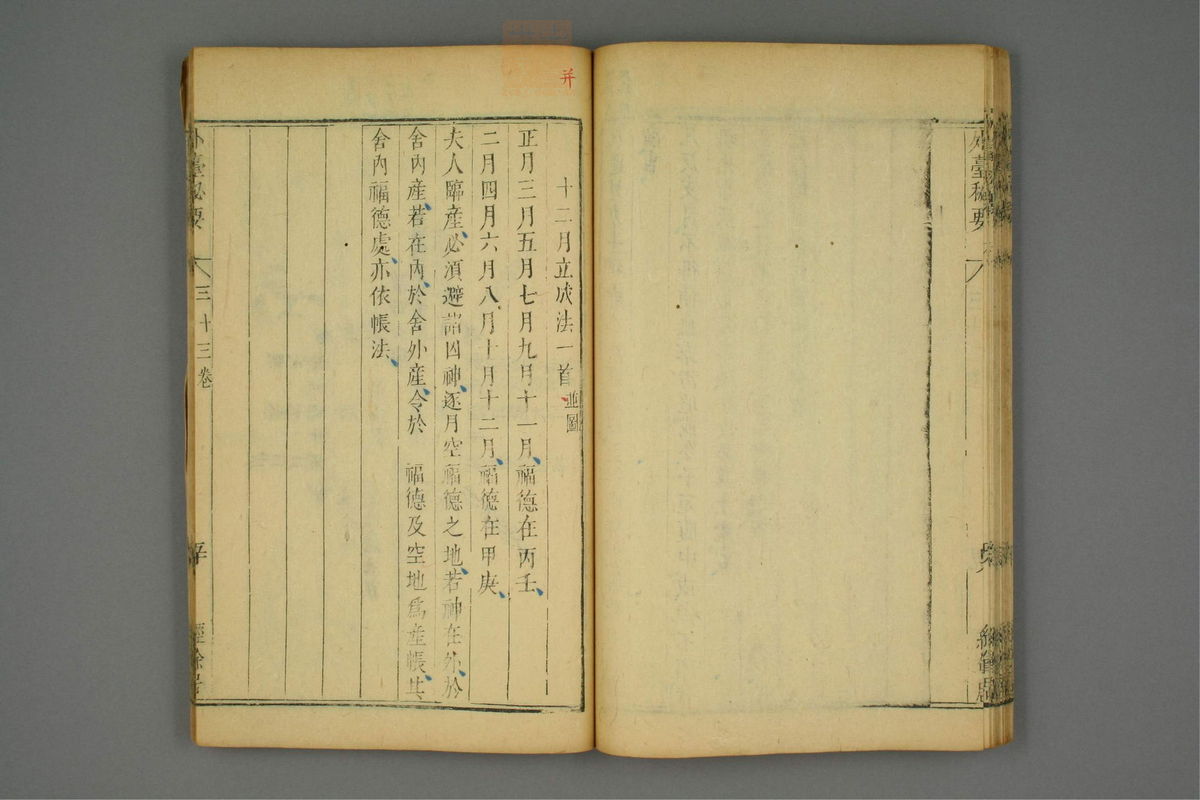 外臺秘要
十二月立成法一首並圖
正月三月五月七月九月十一月福德在丙壬
二月四月六月八月十月十二月福德在甲庚
夫人臨產必須避諸凶神逐月空福德之地若神在外於
舍內產若在內於舍外產令於 福德及空地爲產帳其
舍內福德處亦依帳法
外臺秘要 三十三卷